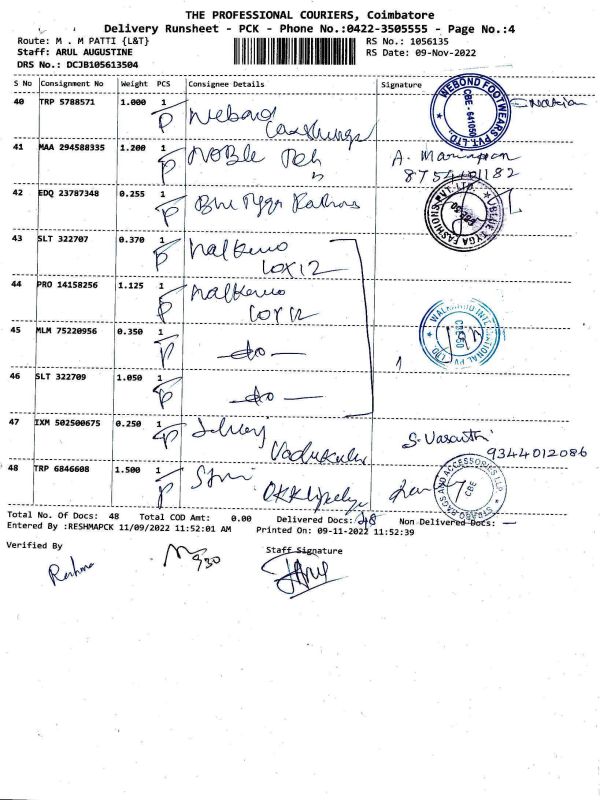 THE PROFESSIONAL COURIERS, Coimbatore
Delivery Runsheet - PCK - Phone No.:0422-3505555 - Page No.:4
Route: M . M PATTI {L&T} RS No.: 1056135
Staff: ARUL AUGUSTINE RS Date: 09-Nov-2022
DRS No.: DCJB105613504
S No Consignment No Weight PCS Consignee Details Signature
40 TRP 5788571 1.000 1 P WEBOND FOOTWEARS PVT. LTD. CBE - 641050
41 MAA 294588335 1.200 1 P NOBLE Tech A.
8754401182
42 EDQ 23787348 0.255 1 P TYGA FASHIONS PVT. LTD.
43 SLT 322707 0.370 1 P Walkaroo
Lox 12
44 PRO 14158256 1.125 1 P Walkaroo
Lox 12 WALKAROO INTERNATIONAL PVT. LTD.
45 MLM 75220956 0.350 1 P -do-
46 SLT 322709 1.050 1 P -do-
47 IXM 502500675 0.250 1 P S. Vasanthi
9344012086
48 TRP 6846608 1.500 1 P BAGS AND ACCESSORIES LLP CBE
Total No. Of Docs: 48 Total COD Amt: 0.00 Delivered Docs: 48 Non Delivered Docs: —
Entered By :RESHMAPCK 11/09/2022 11:52:01 AM Printed On: 09-11-2022 11:52:39
Verified By Staff Signature
Reshma 930 Arul